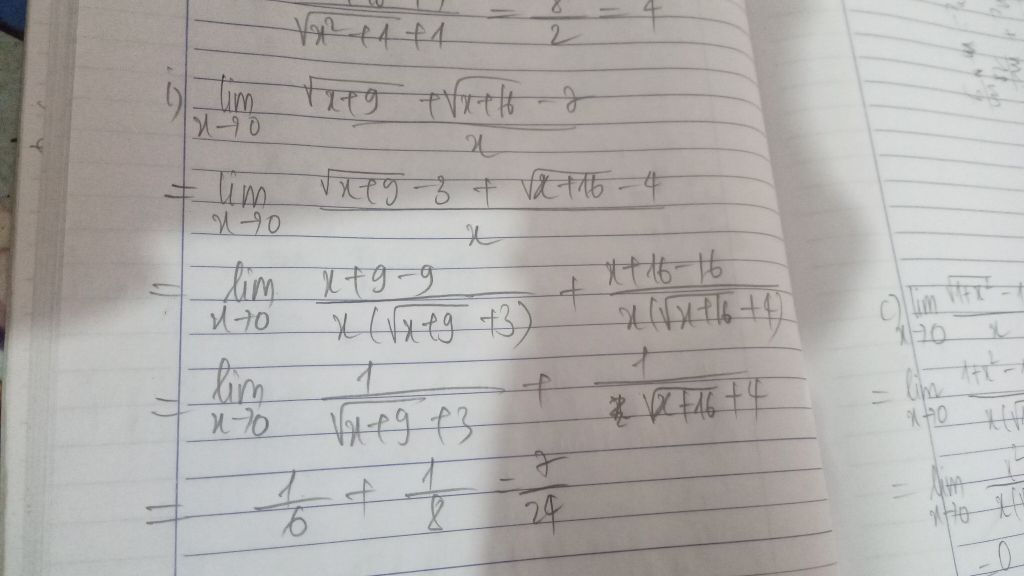 √x²+1 +1 = 8/2 = 4
i) lim x→0 (√x+9 + √x+16 - 7)/x
= lim x→0 (√x+9 - 3 + √x+16 - 4)/x
= lim x→0 (x+9-9)/(x(√x+9 +3)) + (x+16-16)/(x(√x+16 +4))
= lim x→0 1/(√x+9 +3) + 1/(√x+16 +4)
= 1/6 + 1/8 = 7/24
c) lim x→0 √1+x² - 1
x
= lim x→0 1+x² - 1
= lim x→0 x²
= 0